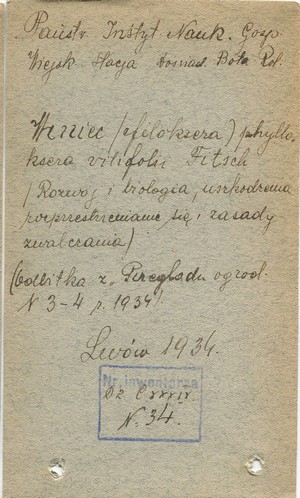 Państw. Instyt. Nauk. Gosp.
Wiejsk. Stacja Doświad. Bota. Rol.
Winiec (filoksera) phyllo-
ksera vitifolii Fitsch
(Rozwój i biologia, uszkodzenia
rozprzestrzenianie się i zasady
zwalczania)
(odbitka z „Przeglądu ogrod.
N 3-4 r. 1934)
Lwów 1934.
Nr. inwentarza
Dz. C XXXIV.
N. 34.